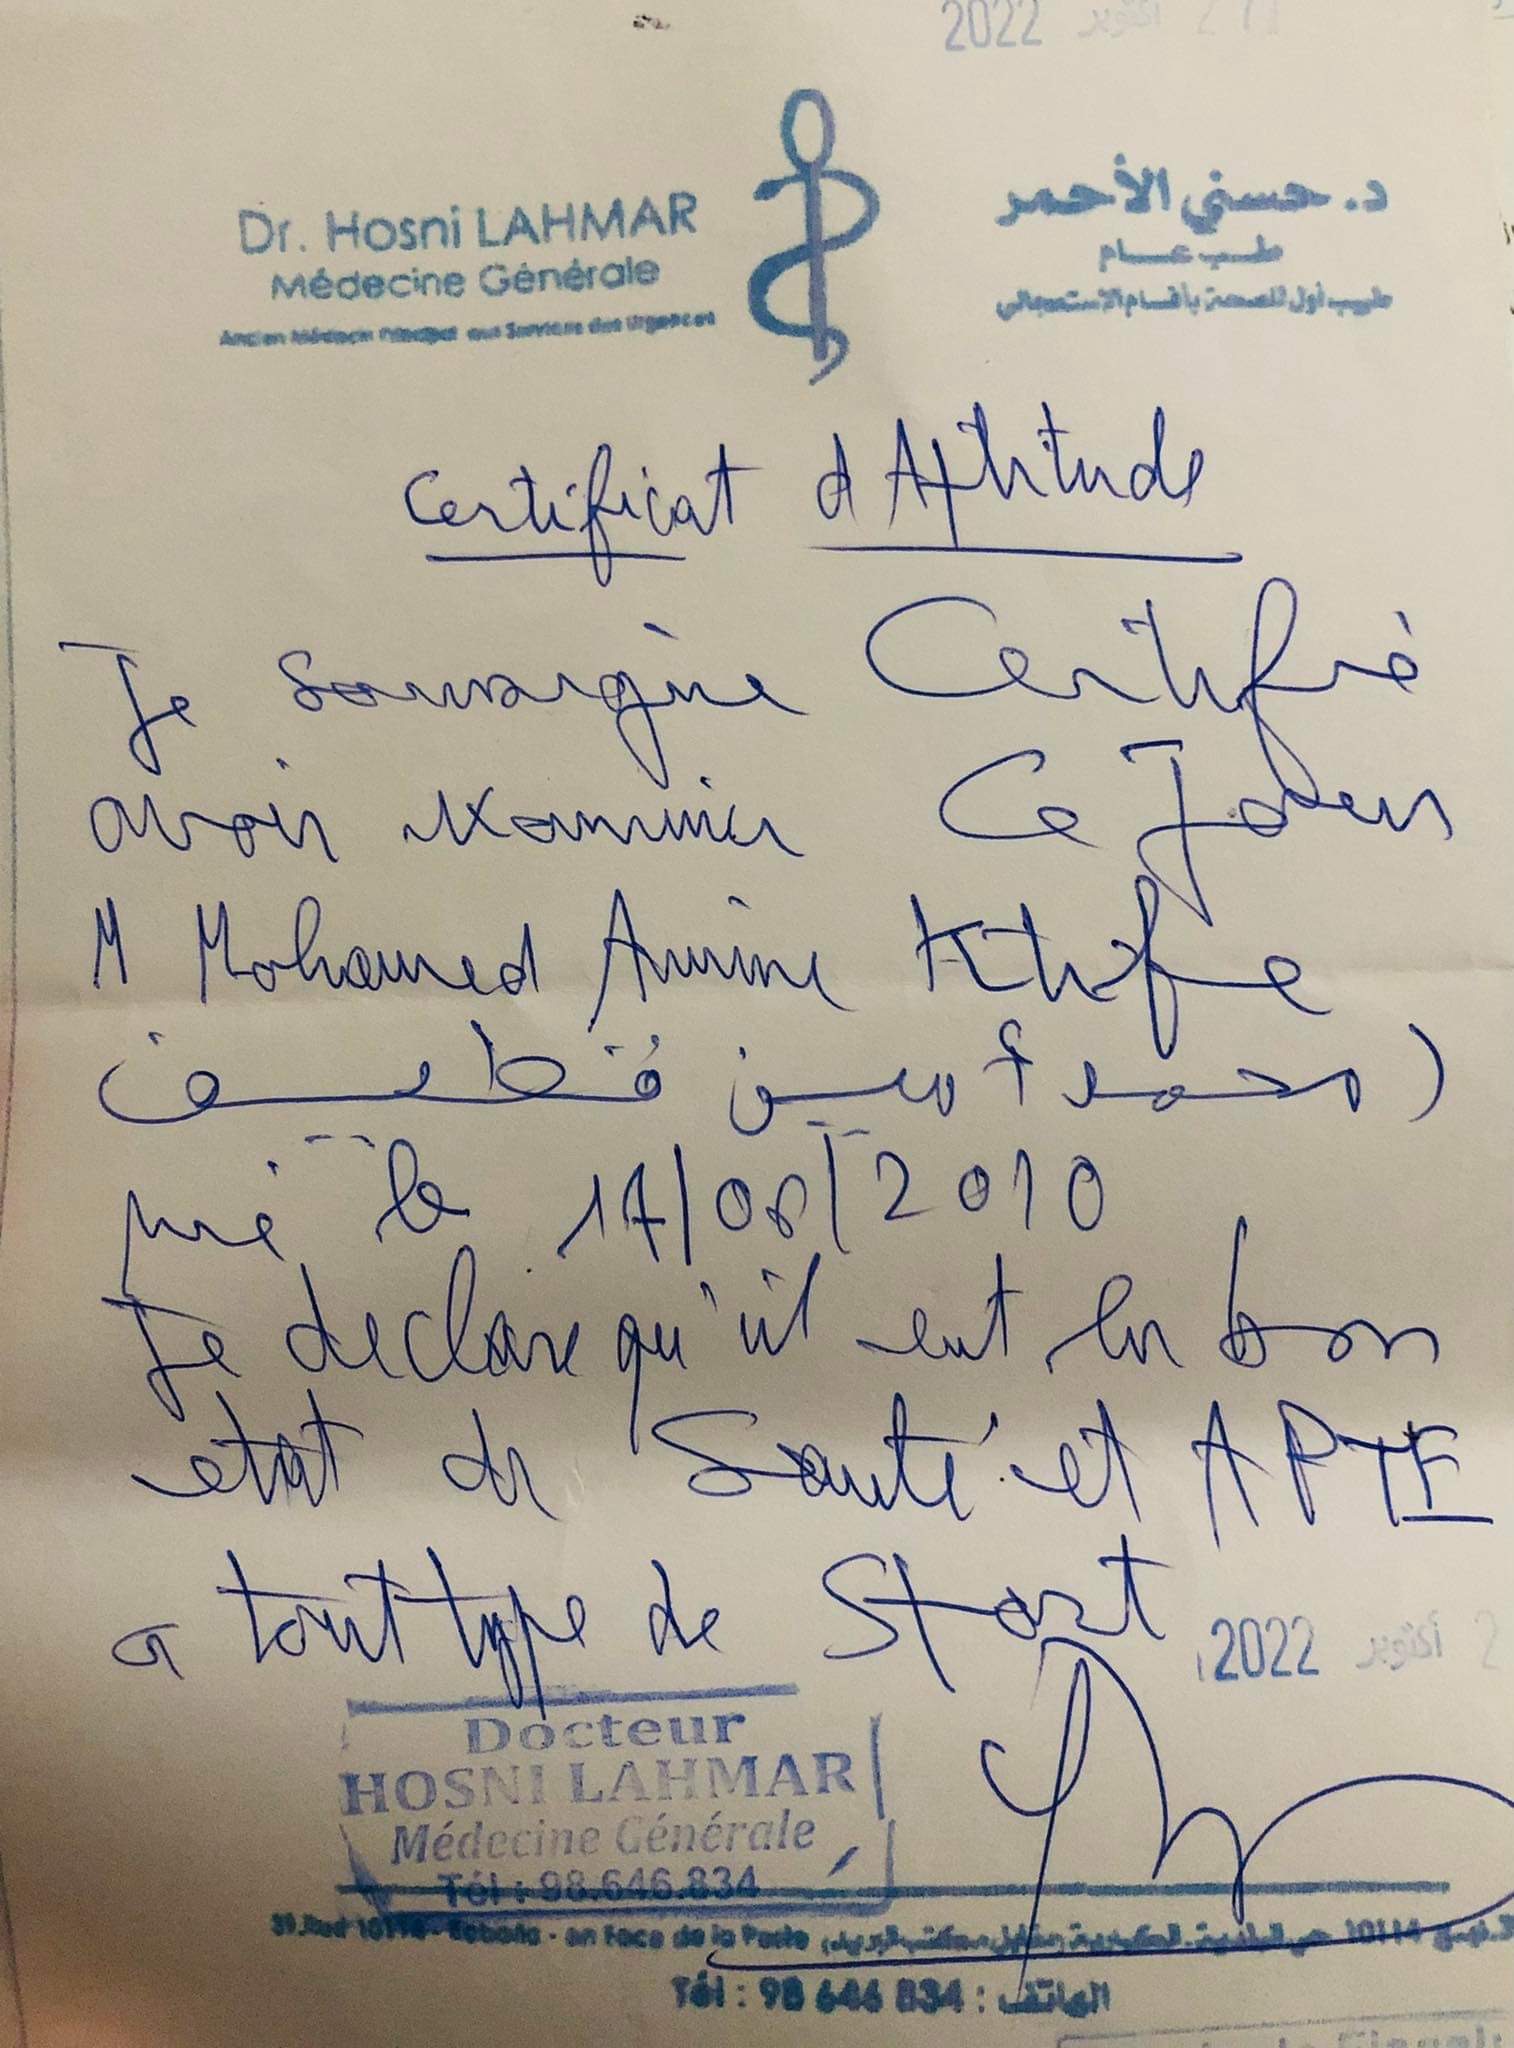 2022 أكتوبر 2
Dr. Hosni LAHMAR
Médecine Générale
Ancien Médecin Principal aux Services des Urgences
د. حسني الأحمر
طب عام
طبيب أول للصحة بأقسام الاستعجالي
Certificat d Aptitude
Je soussigné Certifié
avoir examiner Ce Jour
M Mohamed Amine
(محمد أمين قطيف
né le 17/08/2010
Je declare qu'il est en bon
etat de Santé et APTE
a tout type de Sport
2022 أكتوبر 2
Docteur
HOSNI LAHMAR
Médecine Générale
Tél : 98.646.834
en Face de la Poste
مقابل مكتب البريد
Tél : 98 646 834 : الهاتف